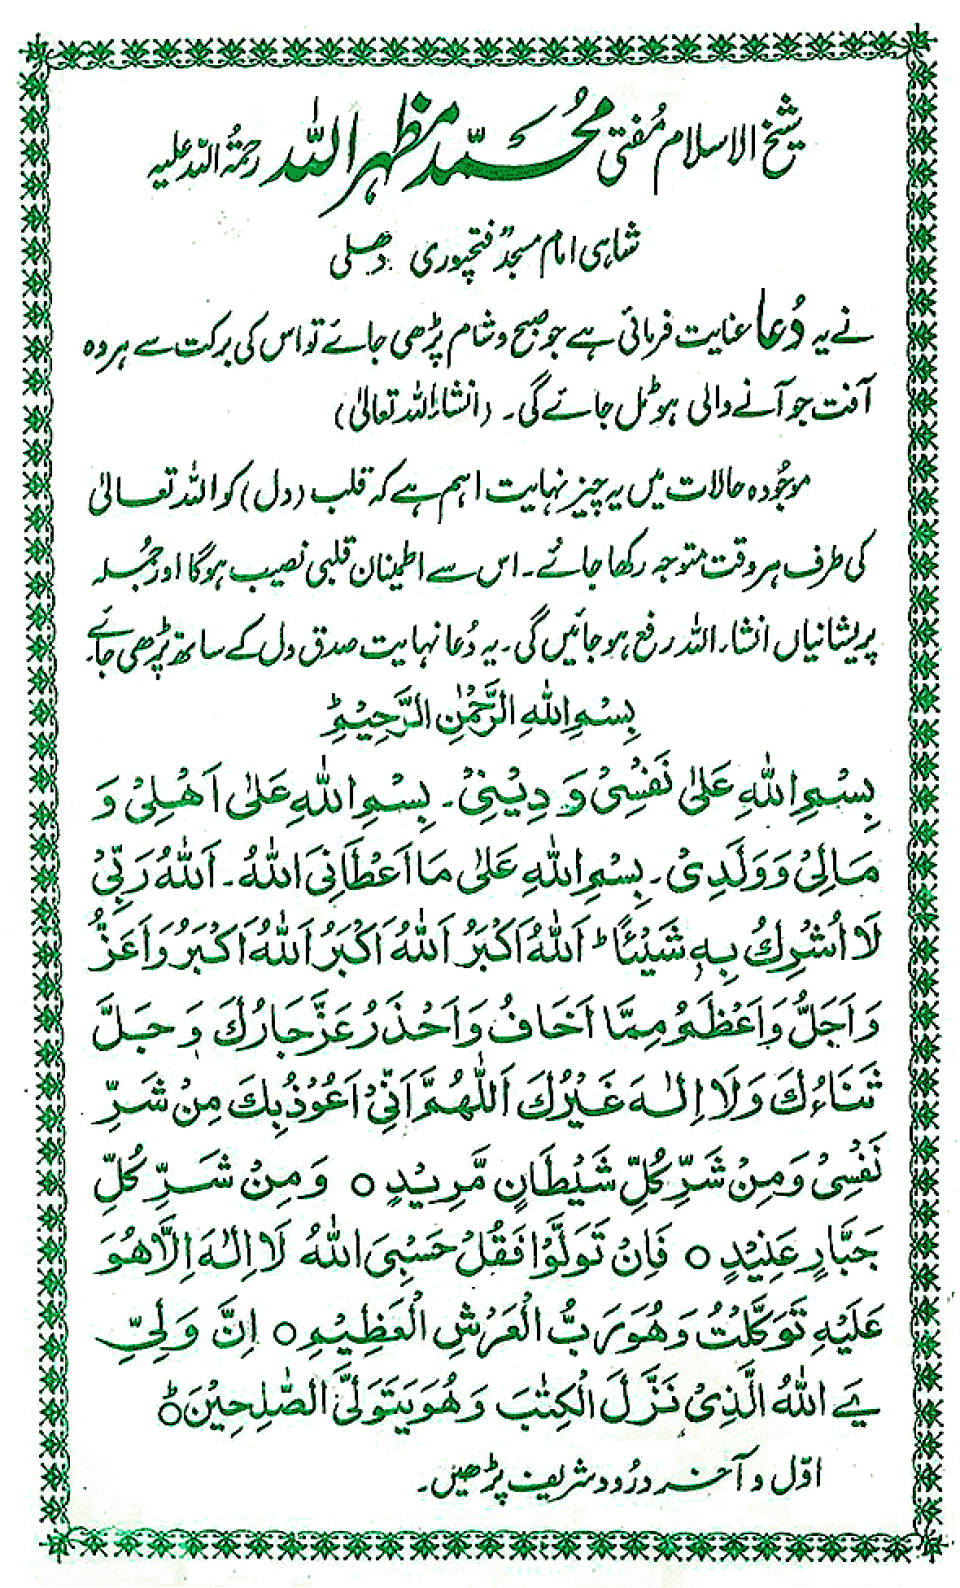 شیخ الاسلام مُفتی محمّد مظہر اللہ رحمۃ اللہ علیہ
شاہی امام مسجد فتحپوری دھلی
نے یہ دُعا عنایت فرمائی ہے جو صبح و شام پڑھی جائے تو اس کی برکت سے ہر وہ
آفت جو آنے والی ہو ٹل جائے گی۔ (انشاء اللہ تعالیٰ)
موجُودہ حالات میں یہ چیز نہایت اہم ہے کہ قلب (دل) کو اللہ تعالیٰ
کی طرف ہر وقت متوجہ رکھا جائے۔ اس سے اطمینان قلبی نصیب ہوگا اور جُملہ
پریشانیاں انشاء اللہ رفع ہو جائیں گی۔ یہ دُعا نہایت صدق دل کے ساتھ پڑھی جائے۔
بِسْمِ اللهِ الرَّحْمٰنِ الرَّحِيْمِ ط
بِسْمِ اللهِ عَلٰى نَفْسِىْ وَ دِيْنِىْ۔ بِسْمِ اللهِ عَلٰى اَهْلِىْ وَ
مَالِىْ وَوَلَدِىْ۔ بِسْمِ اللهِ عَلٰى مَا اَعْطَانِىَ اللهُ۔ اَللهُ رَبِّىْ
لَا اُشْرِكُ بِهٖ شَيْئًا ط اَللهُ اَكْبَرُ اَللهُ اَكْبَرُ اَللهُ اَكْبَرُ وَاَعَزُّ
وَاَجَلُّ وَاَعْظَمُ مِمَّا اَخَافُ وَاَحْذَرُ عَزَّ جَارُكَ وَ جَلَّ
ثَنَاءُكَ وَلَا اِلٰهَ غَيْرُكَ اَللّٰهُمَّ اِنِّىْ اَعُوْذُ بِكَ مِنْ شَرِّ
نَفْسِىْ وَمِنْ شَرِّ كُلِّ شَيْطَانٍ مَّرِيْدٍ ○ وَمِنْ شَرِّ كُلِّ
جَبَّارٍ عَنِيْدٍ ○ فَاِنْ تَوَلَّوْا فَقُلْ حَسْبِىَ اللهُ لَا اِلٰهَ اِلَّا هُوَ
عَلَيْهِ تَوَكَّلْتُ وَهُوَ رَبُّ الْعَرْشِ الْعَظِيْمِ ○ اِنَّ وَلِيِّ
يَ اللهُ الَّذِىْ نَزَّلَ الْكِتٰبَ وَهُوَ يَتَوَلَّى الصّٰلِحِيْنَ ○ ط
اوّل و آخر درود شریف پڑھیں۔